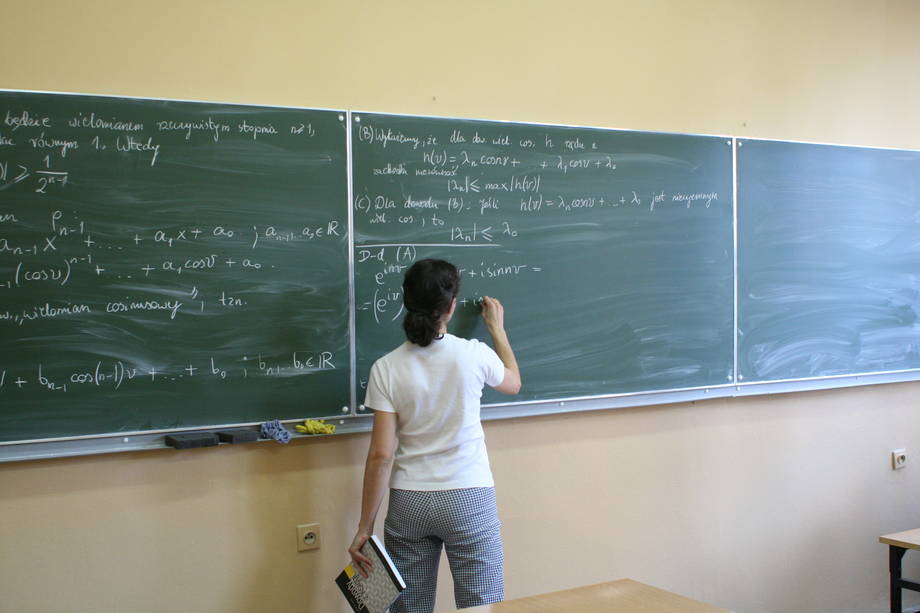 będzie wielomianem rzeczywistym stopnia n≥1,
równym 1. Wtedy
≥ 1/2ⁿ⁻¹
Pₙ₋₁
aₙ₋₁ x + ... + a₁x + a₀ ; aₙ₋₁...a₀ ∈ ℝ
(cosν)ⁿ⁻¹ + ... + a₁cosν + a₀.
"wielomian cosinusowy", tzn.
+ bₙ₋₁ cos(n-1)ν + ... + b₀ ; bₙ₋₁...b₀ ∈ ℝ
(B) Wykażemy, że dla dow. wiel. cos. h rzędu n
h(ν) = λₙ cosnν + + λ₁cosν + λ₀
zachodzi nierówność
|λₙ| ≤ max|h(ν)|
(C) Dla dowodu (b). Jeśli h(ν) = λₙcosnν + ... + λ₀ jest nieujemnym
wiel. cos., to
|λₙ| ≤ λ₀
D-d (A)
e^{inν} + i sinnν =
= (e^{iν}) + i